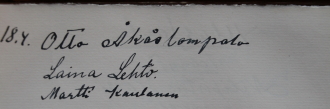 18.4. Otto Äkäslompolo
Laina Lehto.
Martti Kaulanen